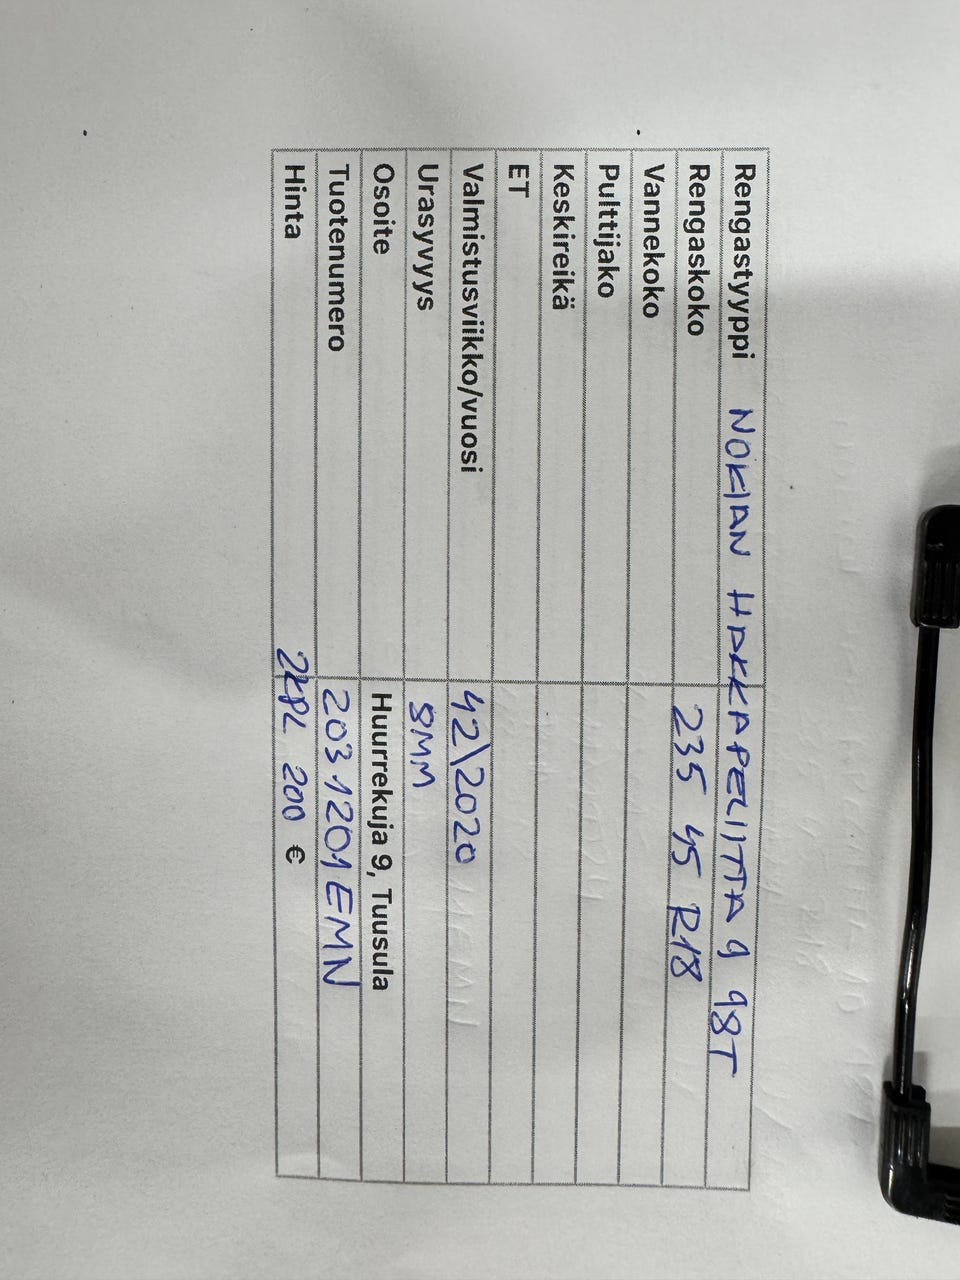 Rengastyyppi NOKIAN HAKKAPELIITTA 9 98T
Rengaskoko 235 45 R18
Vannekoko
Pulttijako
Keskireikä
ET
Valmistusviikko/vuosi 42\2020
Urasyvyys 8MM
Osoite Huurrekuja 9, Tuusula
Tuotenumero 2031201EMN
Hinta 2KPL 200 €